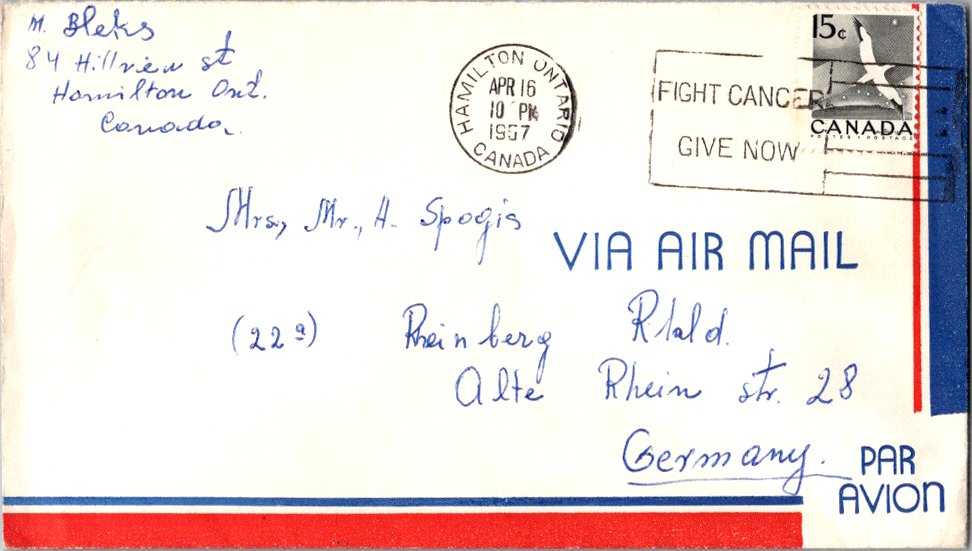 M. Bleks
84 Hillview st
Hamilton Ont.
Canada.
HAMILTON ONTARIO
APR 16
10 PM
1957
CANADA
FIGHT CANCER
GIVE NOW
15¢
CANADA
POSTES · POSTAGE
Mrs, Mr., H. Spogis
VIA AIR MAIL
(22ª) Rheinberg Rhld.
Alte Rhein str. 28
Germany.
PAR
AVION